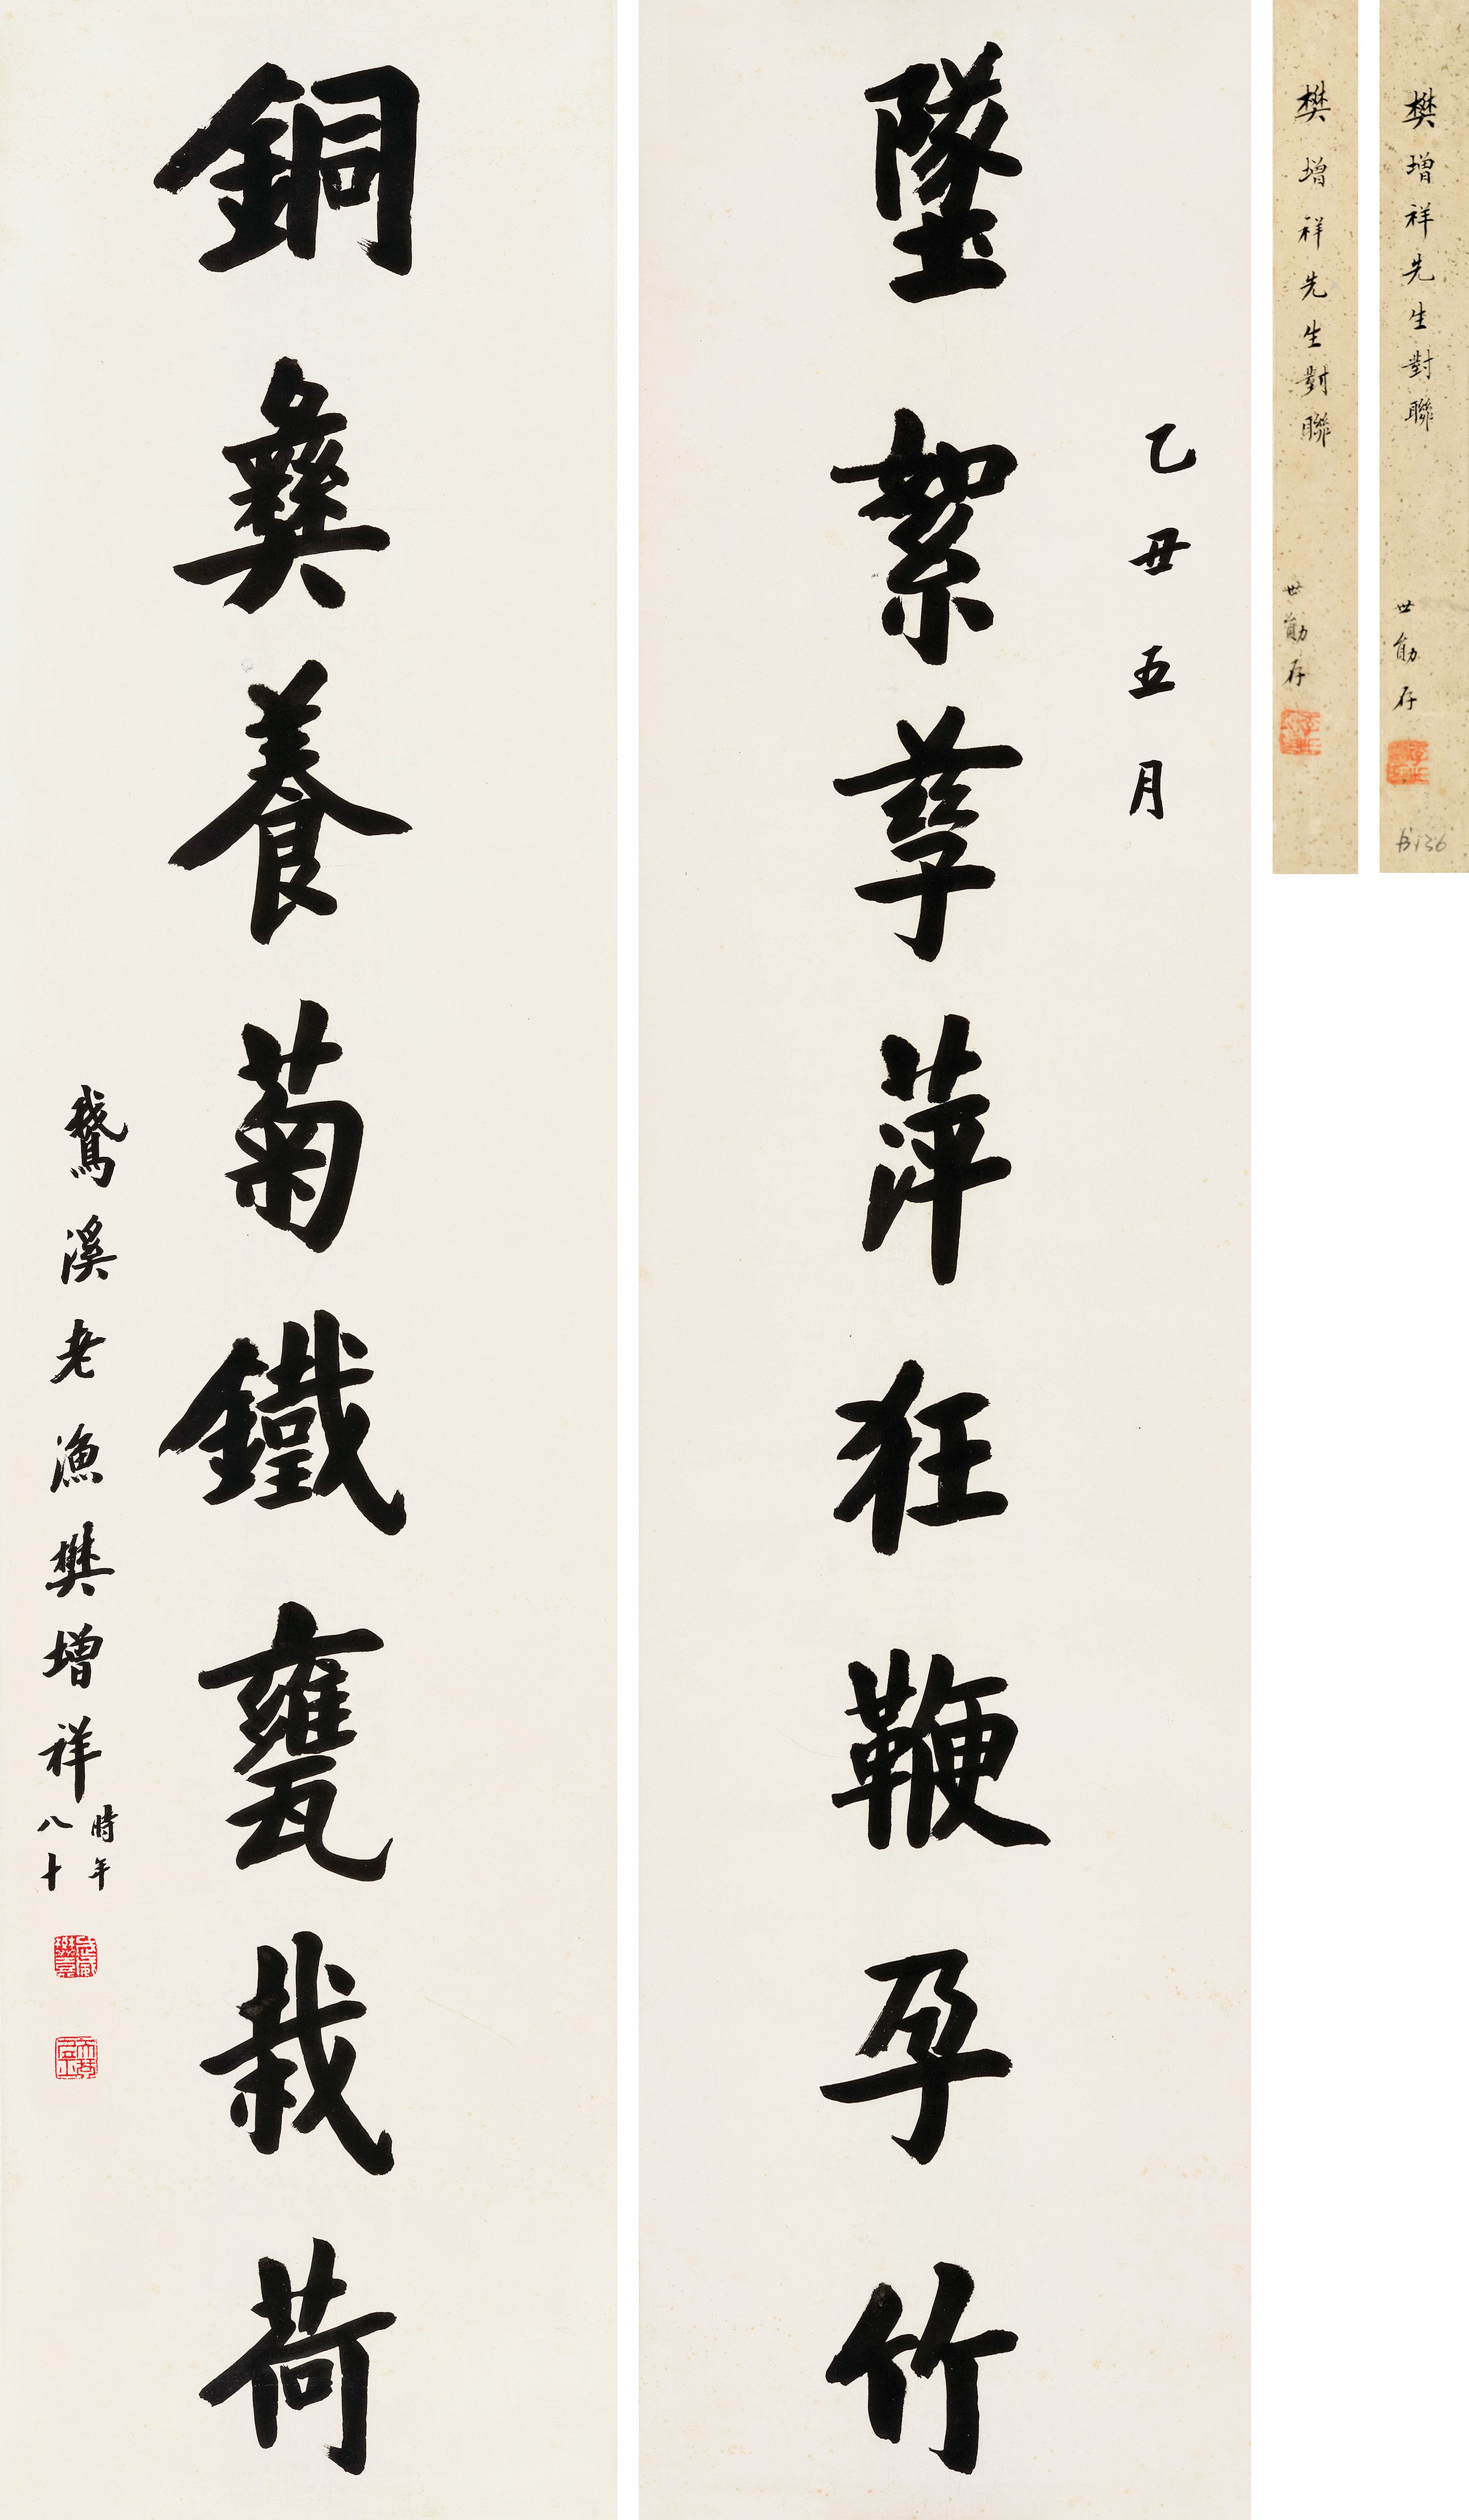 樊增祥先生對聯
世勛存
樊增祥先生對聯
世勛存
乙丑五月
墜絮孳萍狂鞭孕竹
銅彝養菊鐵甕栽荷
鵞溪老漁樊增祥
時年
八十